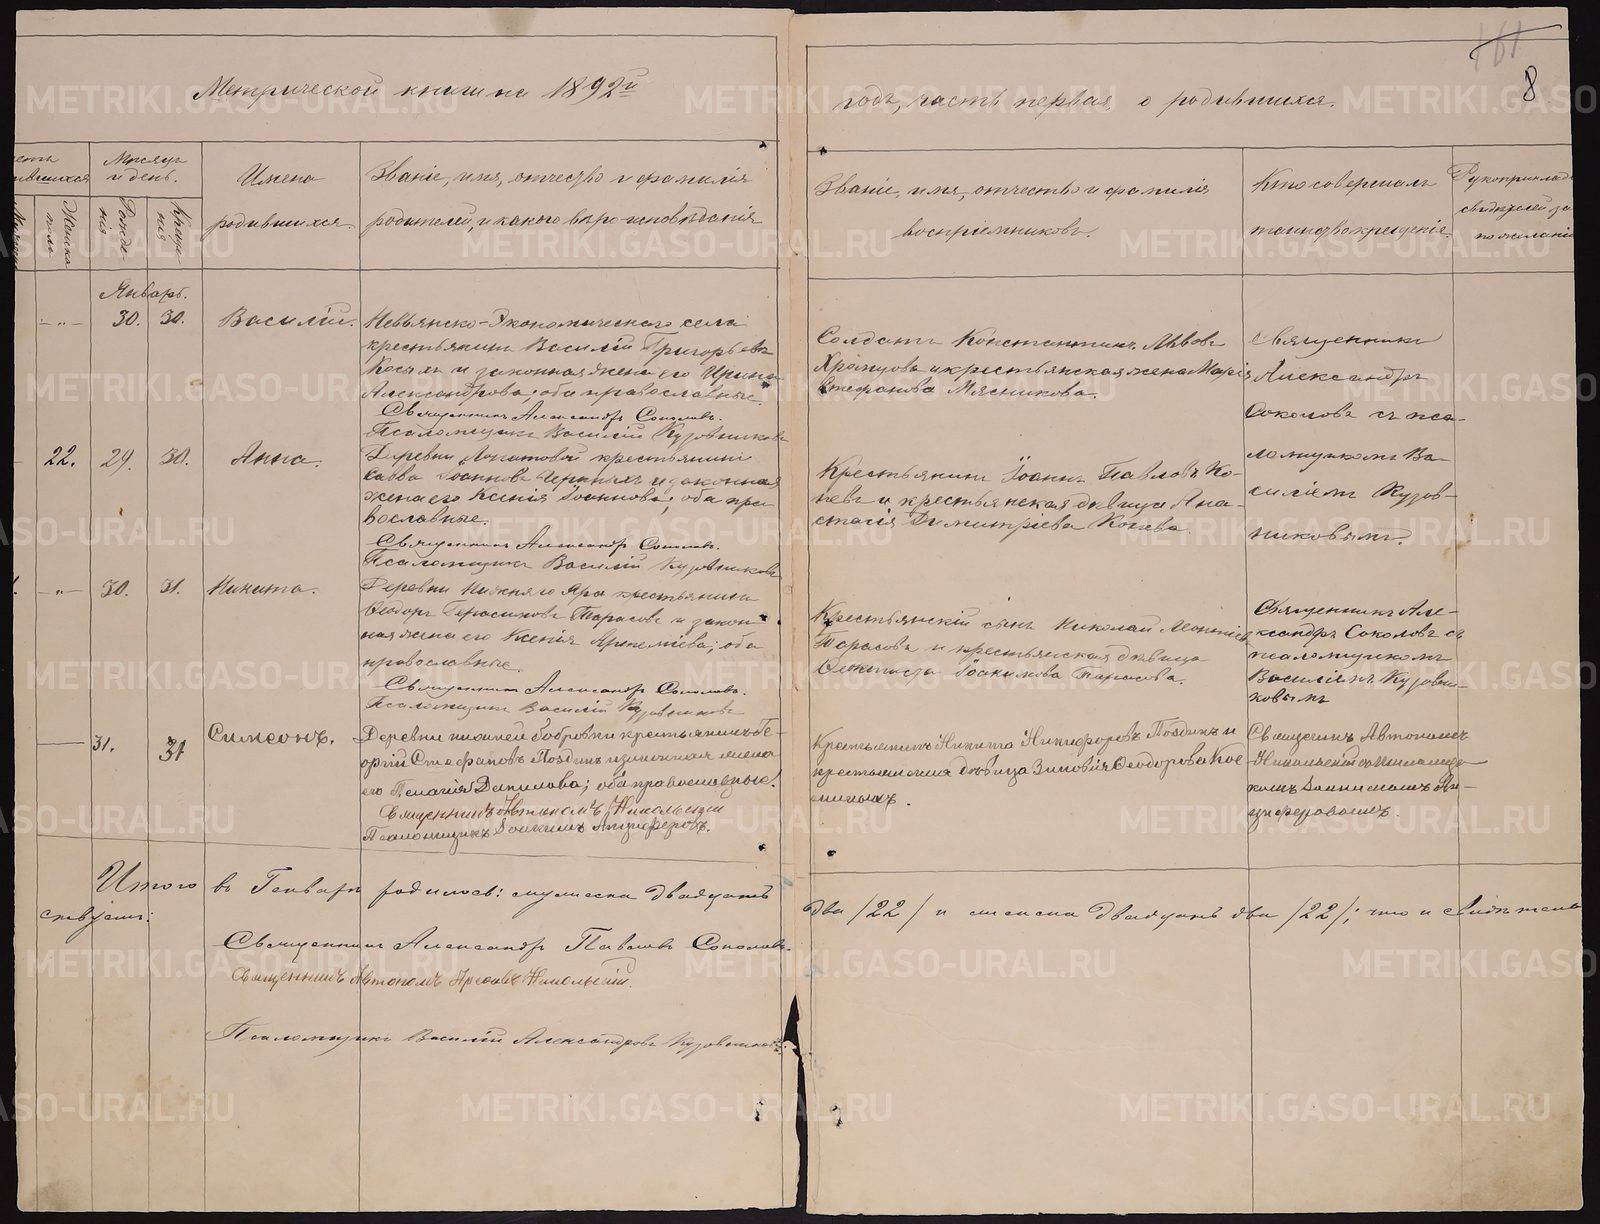 Метрической книги на 1892й
годъ, часть первая, о родившихся.
8
Мѣсяцъ и день.
Рожденія
Крещенія
Женска пола
Имена родившихся.
Званіе, имя, отчество и фамилія
родителей, и какого вѣроисповѣданія
Званіе, имя, отчество и фамилія
воспріемниковъ.
Кто совершалъ
таинство крещенія.
Рукоприклад
свидѣтелей за
по желанію
Январь.
30. 30. Василій.
Невьянско-Экономическаго села
крестьянинъ Василій Григорьевъ
и законная жена его Ирина
Александрова; оба православные.
Священникъ Александръ Соколовъ.
Псаломщикъ Василій Кузовниковъ
Солдатъ Константинъ Львовъ
Храмцовъ и крестьянская жена Марія
Стефанова Мясникова.
Священникъ
Александръ
Соколовъ съ пса-
ломщикомъ Ва-
силіемъ Кузов-
никовымъ.
22. 29. 30. Анна.
Деревни Лопатовой крестьянинъ
Савва Іоанновъ Черныхъ и законная
жена его Ксенія Іоаннова; оба пра-
вославные.
Священникъ Александръ Соколовъ.
Псаломщикъ Василій Кузовниковъ
Крестьянинъ Іоаннъ Павловъ Ко-
невъ и крестьянская дѣвица Ана-
стасія Димитріева Конева
30. 31. Никита.
Деревни Нижняго Яра крестьянинъ
Ѳеодоръ Герасимовъ Тарасовъ и закон-
ная жена его Ксенія; оба
православные.
Священникъ Александръ Соколовъ.
Псаломщикъ Василій Кузовниковъ
Крестьянскій сынъ Николай Леонтіевъ
Тарасовъ и крестьянская дѣвица
Іоакимова Тарасова.
Священникъ Але-
ксандръ Соколовъ съ
псаломщикомъ
Василіемъ Кузовни-
ковымъ
31. 31 Симеонъ.
Деревни нижней Бобровки крестьянинъ Ге-
оргій Стефановъ Поздинъ и законная жена
его Пелагія Данилова; оба православные.
Священникъ Автономъ Никольскій
Псаломщикъ Іоакимъ Анциферовъ.
Крестьянинъ Никита Никифоровъ Поздинъ и
крестьянская дѣвица Зиновія Ѳеодорова
Священникъ Автономъ
Никольскій съ псаломщи-
комъ Іоакимомъ Ан-
циферовымъ.
Итого въ Генварѣ родилось: мужеска двадцать
два /22/ и женска двадцать два /22/; что и свидѣтель
ствуемъ:
Священникъ Александръ Павловъ Соколовъ.
Священникъ Автономъ Никольскій.
Псаломщикъ Василій Александровъ Кузовниковъ.
METRIKI.GASO-URAL.RU